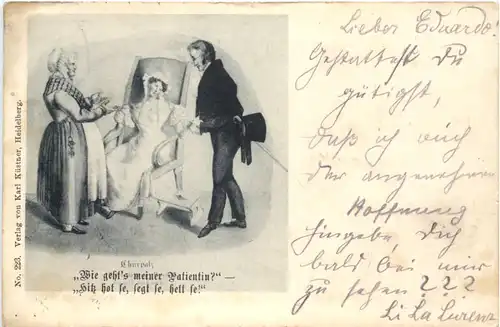 No. 223. Verlag von Karl Küstner, Heidelberg.
Churpalz
„Wie geht's meiner Patientin?" —
„Hitz hot se, segt se, hett se!"
Lieber Eduardo!
Gestattest Du
gütigst,
daß ich auch
der angenehmen
Hoffnung
hingebe, Dich
bald bei mir
zu sehen ? ? ?
Li La Lorenz